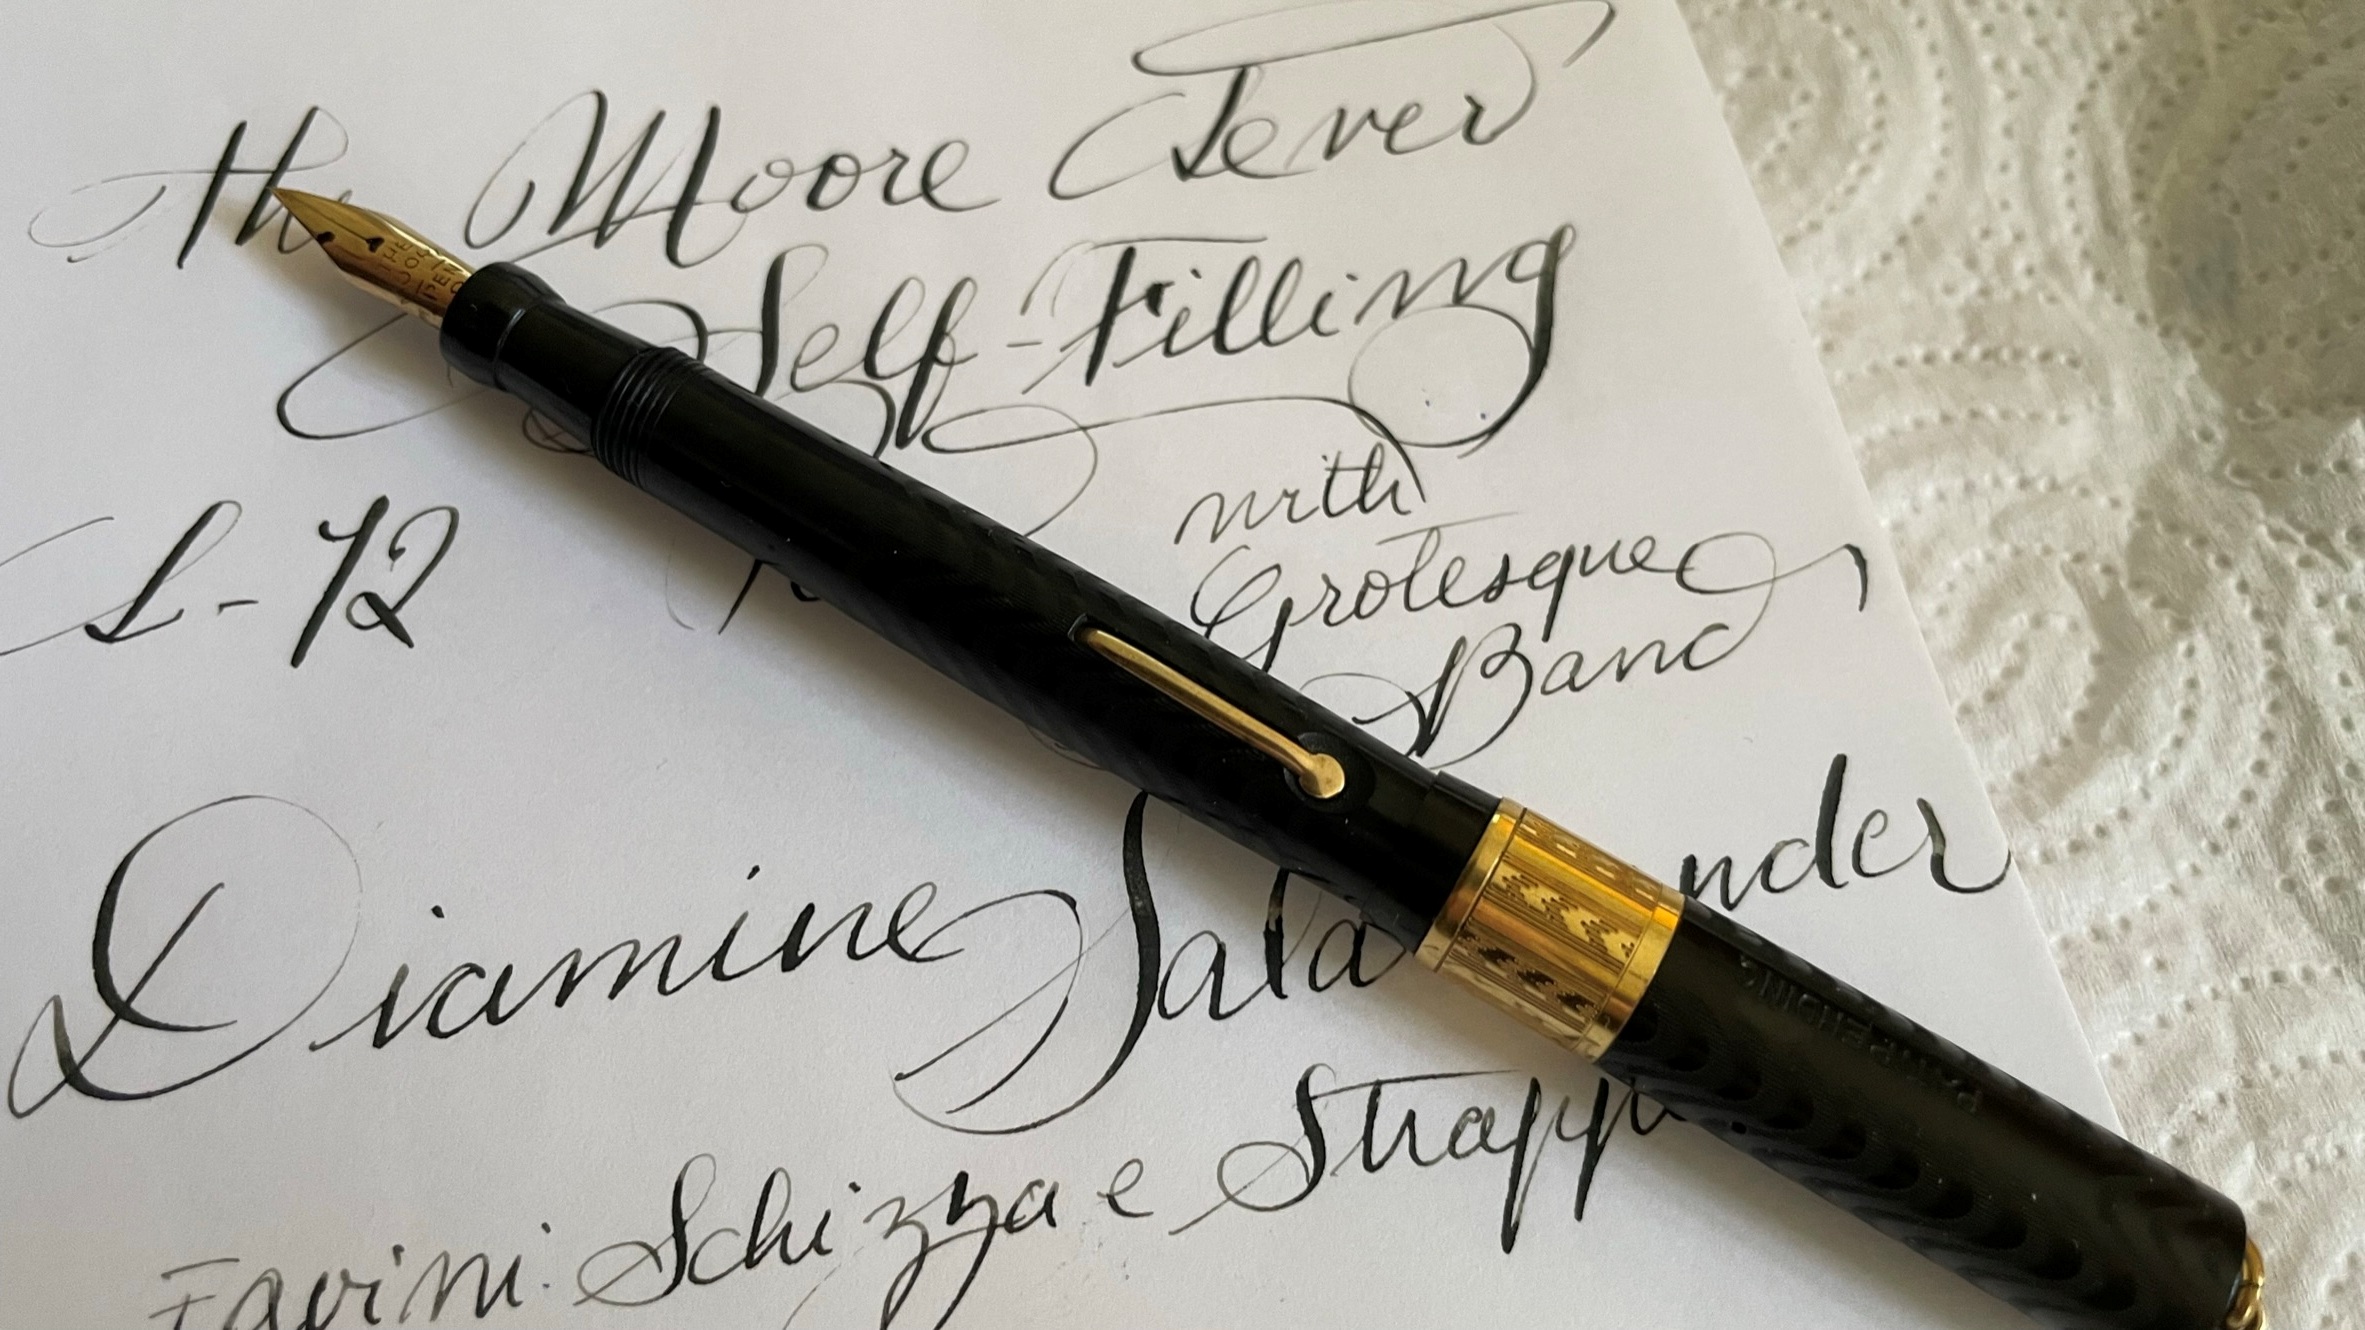 The Moore Lever
Self-Filling
L-72
with
Grotesque
Band
Diamine
Favini Schizza e
THE
PEN
PAT. PENDING